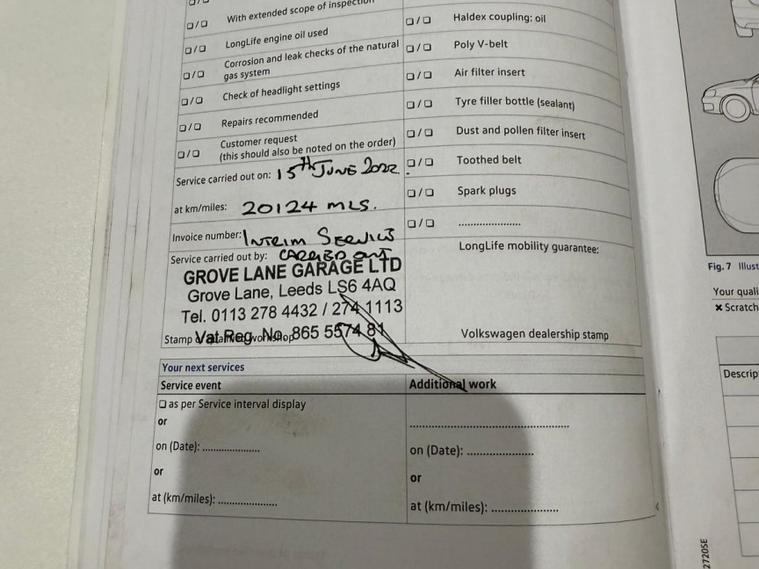 With extended scope of inspection
LongLife engine oil used
Corrosion and leak checks of the natural
gas system
Check of headlight settings
Repairs recommended
Customer request
(this should also be noted on the order)
Service carried out on: 15TH JUNE 2022.
at km/miles: 20124 MLS.
Invoice number: INTERIM SERVICE
Service carried out by: CARRIED OUT
GROVE LANE GARAGE LTD
Grove Lane, Leeds LS6 4AQ
Tel. 0113 278 4432 / 274 1113
Vat Reg. No. 865 5574 81
Haldex coupling: oil
Poly V-belt
Air filter insert
Tyre filler bottle (sealant)
Dust and pollen filter insert
Toothed belt
Spark plugs
....................
LongLife mobility guarantee:
Volkswagen dealership stamp
Your next services
Service event
as per Service interval display
or
on (Date): ..................
or
at (km/miles): ..................
Additional work
..................................................
on (Date): .....................
or
at (km/miles): .....................
Fig. 7 Illust
Your quali
✖ Scratch
Descrip
2720SE